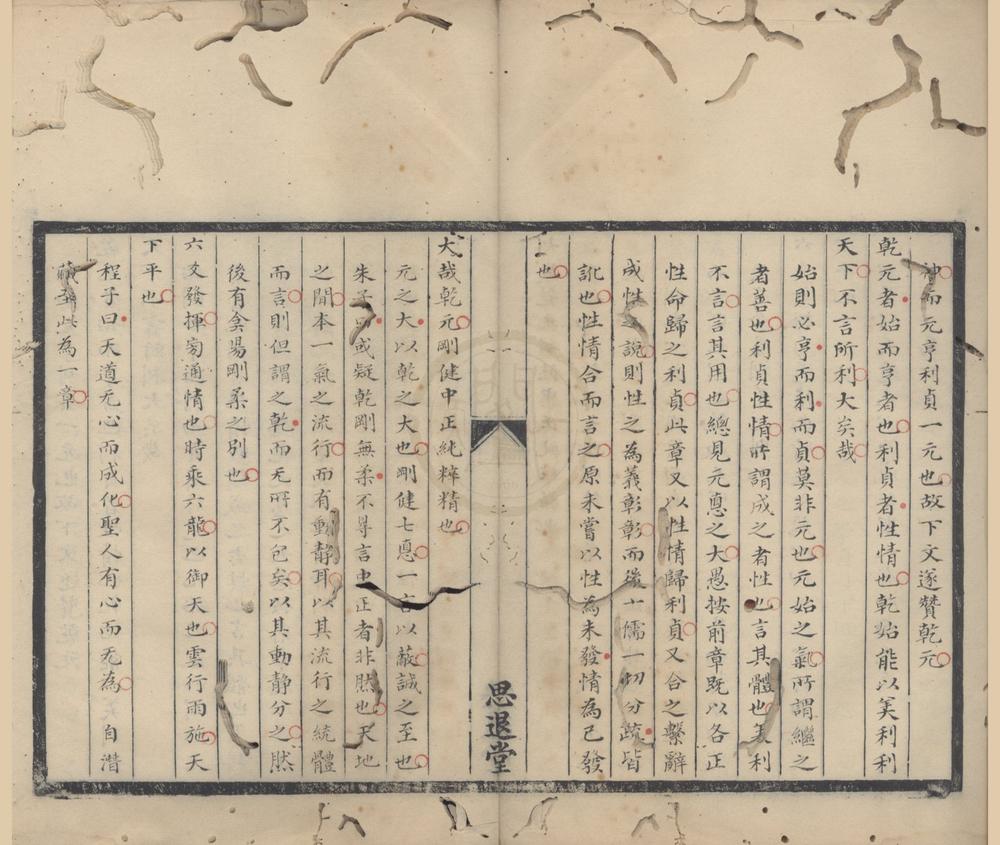 而元亨利貞一元也故下文遂贊乾元
乾元者始而亨者也利貞者性情也乾始能以美利利
天下不言所利大矣哉
始則必亨而利而貞莫非元也元始之氣所謂繼之
者善也利貞性情所謂成之者性也言其體也美利
不言言其用也總見元悳之大愚按前章既以各正
性命歸之利貞此章又以性情歸利貞又合之繫辭
成性之說則性之為義彰彰而後小儒一切分疏皆
訛也性情合而言之原未嘗以性為未發情為已發
也
思退堂
大哉乾元剛健中正純粹精也
元之大以乾之大也剛健七悳一言以蔽誠之至也
朱子曰或疑乾剛無柔不得言中正者非然也天地
之間本一氣之流行而有動靜耳以其流行之統體
而言則但謂之乾而无所不包矣以其動靜分之然
後有侌昜剛柔之別也
六爻發揮旁通情也時乘六龍以御天也雲行雨施天
下平也
程子曰天道无心而成化聖人有心而无為自潛
藏至此為一章